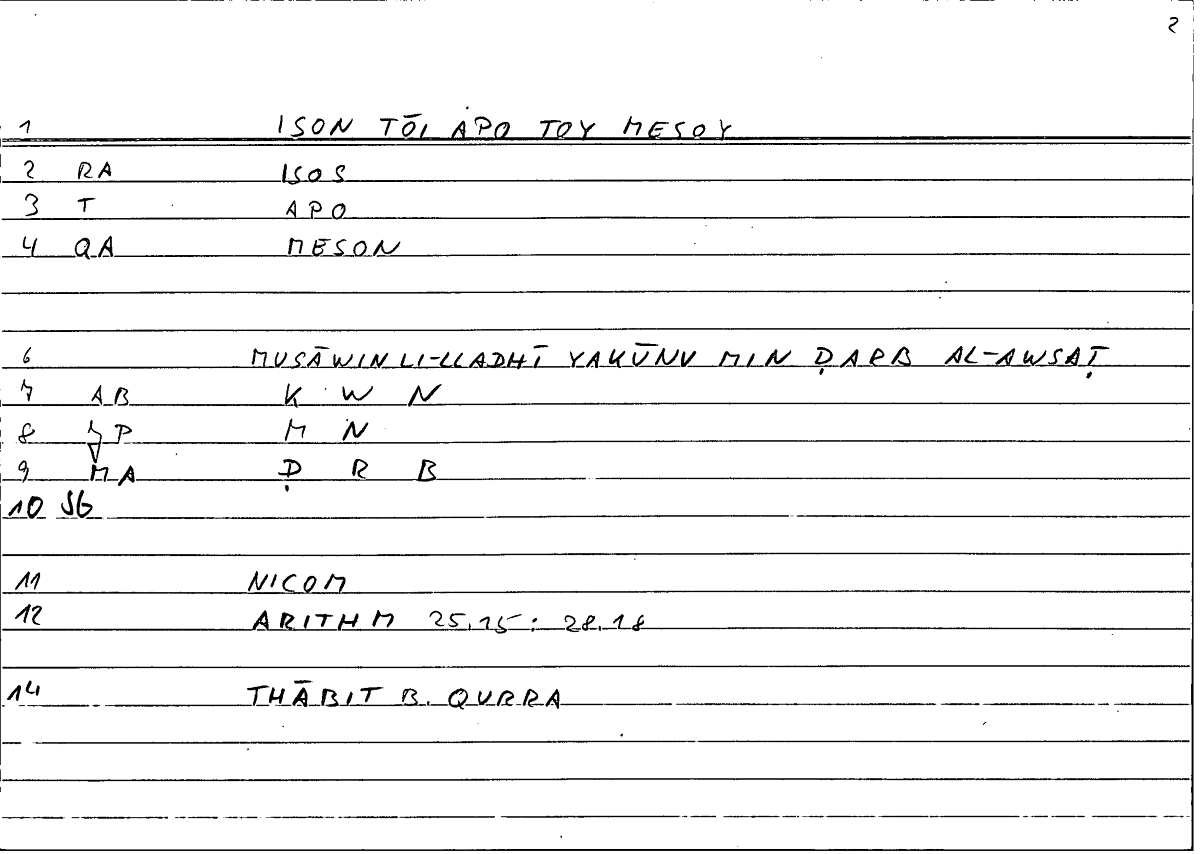 2
1 ISON TŌI APO TOY MESOY
2 RA ISOS
3 T APO
4 QA MESON
6 MUSĀWIN LI-LLADHĪ YAKŪNU MIN ḌARB AL-AWSAṬ
7 AB K W N
8 P M N
9 MA Ḍ R B
10 SG
11 NICOM
12 ARITHM 25,15 : 28,18
14 THĀBIT B. QURRA